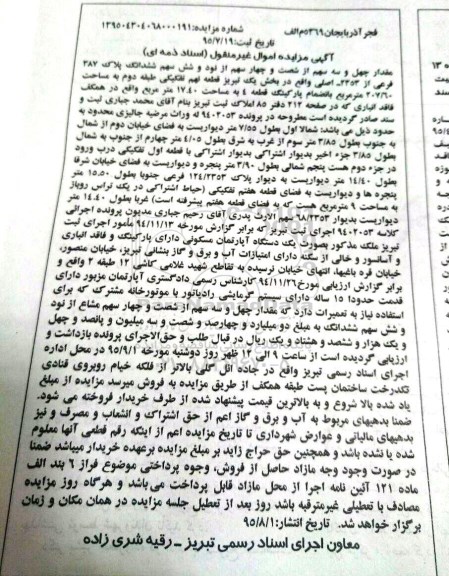 فجر آذربایجان ۵۳۶۹م/الف
شماره مزایده: ۱۳۹۵۰۴۳۰۴۰۶۸۰۰۰۱۹۱
تاریخ ثبت: ۹۵/۷/۱۹
آگهی مزایده اموال غیرمنقول (اسناد ذمه ای)
مقدار چهل و سه سهم از شصت و چهار سهم از نود و شش سهم ششدانگ پلاک ۳۸۷
فرعی از ۲۳۵۳ـ اصلی واقع در بخش یک تبریز قطعه نهم تفکیکی طبقه دوم به مساحت
۲۰۷/۶۰ مترمربع بانضمام پارکینگ قطعه ۴ به مساحت ۱۷.۴۰ متر مربع واقع در همکف
فاقد انباری که در صفحه ۲۱۲ دفتر ۸۵ املاک ثبت تبریز بنام آقای محمد جباری ثبت و
سند صادر گردیده است مطروحه در پرونده ۹۴۰۲۰۵۳ له وراث مرضیه جالیزی محدود به
حدود ذیل می باشد: شمالا اول بطول ۷/۵۵ متر دیواریست به فضای خیابان دوم از شمال
به جنوب بطول ۳/۸۵ متر سوم از غرب به شرق بطول ۴/۰۵ متر چهارم از جنوب به شمال
بطول ۳/۸۵ جزء اخیر بدیوار اشتراکی بدیوار اشتراکی با قطعه اول تفکیکی درب ورود
در جزء دوم هست پنجم شمالی بطول ۳/۹۰ متر پنجره و دیواریست به فضای خیابان شرقا
بطول ۱۴/۴۰ متر دیواریست به دیوار پلاک ۱۲۴/۲۳۵۳ فرعی جنوبا بطول ۱۵.۵۰ متر
پنجره ها و دیواریست به فضای قطعه هفتم تفکیکی (حیاط اشتراکی در یک تراس روباز
به مساحت ۹ مترمربع هست که به فضای قطعه هفتم پیشرفته است) غربا بطول ۱۴.۴۰ متر
دیواریست بدیوار ۹۸/۲۳۵۳ سهم الارث پدری آقای رحیم جباری مدیون پرونده اجرائی
کلاسه ۹۴۰۲۰۵۳ اجرای ثبت تبریز که برابر گزارش مورخه ۹۴/۱۱/۱۳ مأمور اجرای ثبت
تبریز ملک مذکور بصورت یک دستگاه آپارتمان مسکونی دارای پارکینگ و فاقد انباری
و آسانسور و خالی از سکنه دارای امتیازات آب و برق و گاز بنشانی تبریز، خیابان منصور،
خیابان قره باغیها، انتهای خیابان نرسیده به تقاطع شهید غلامی کاشی ۱۲ طبقه ۲ واقع و
برابر گزارش ارزیابی مورخ ۹۴/۱۱/۲۶ کارشناس رسمی دادگستری آپارتمان مزبور دارای
قدمت حدودا ۱۵ ساله دارای سیستم گرمایشی رادیاتور با موتورخانه مشترک که برای
استفاده نیاز به تعمیرات دارد که مقدار چهل و سه سهم از شصت و چهار سهم مشاع از نود
و شش سهم ششدانگ به مبلغ دو میلیارد و چهارصد و شصت و سه میلیون و پانصد و چهل
و یک هزار و ششصد و هشتاد و یک ریال در قبال طلب و حق الاجرای پرونده بازداشت و
ارزیابی گردیده است از ساعت ۹ الی ۱۲ ظهر روز دوشنبه مورخه ۹۵/۹/۱ در محل اداره
اجرای اسناد رسمی تبریز واقع در جاده ائل گلی بالاتر از فلکه خیام روبروی قنادی
تکدرخت ساختمان پست طبقه همکف از طریق مزایده به فروش میرسد مزایده از مبلغ
یاد شده بالا شروع و به بالاترین قیمت پیشنهاد شده از طرف خریدار فروخته می شود.
ضمنا بدهیهای مربوط به آب و برق و گاز اعم از حق اشتراک و انشعاب و مصرف و نیز
بدهیهای مالیاتی و عوارض شهرداری تا تاریخ مزایده اعم از اینکه رقم قطعی آنها معلوم
شده یا نشده باشد و همچنین حق حراج زاید بر مبلغ مزایده برعهده خریدار میباشد ضمنا
در صورت وجود وجه مازاد حاصل از فروش، وجوه پرداختی موضوع فراز ۶ بند الف
ماده ۱۲۱ آئین نامه اجرا از محل مازاد قابل پرداخت می باشد و هرگاه روز مزایده
مصادف با تعطیلی غیرمترقبه باشد روز بعد از تعطیل جلسه مزایده در همان مکان و زمان
برگزار خواهد شد. تاریخ انتشار: ۹۵/۸/۱
معاون اجرای اسناد رسمی تبریز ـ رقیه شری زاده